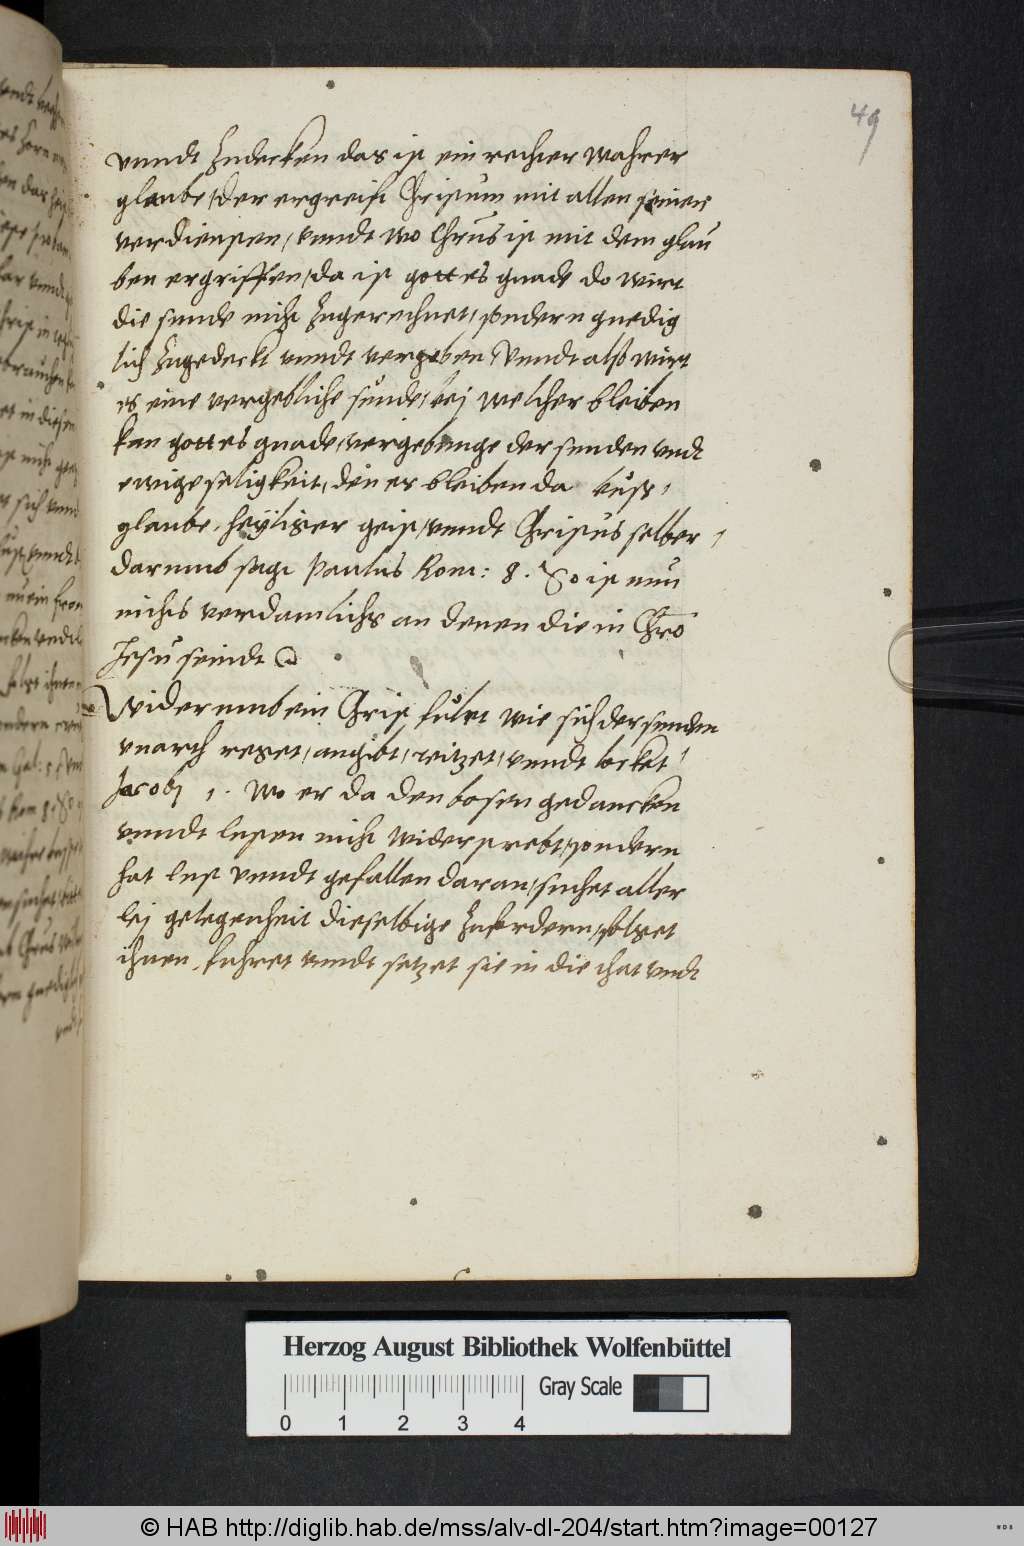 49
vnndt Zudecken das ist ein rechter wahrer
glaube, der ergreift Christum mit allen seinen
verdiensten, vnndt wo Chrus ist mit dem glau
ben ergriffen, da ist gottes gnade do wirt
die sunde nicht Zugerechnet, sondern gnedig
lich Zugedeckt vnndt vergeben Vnndt alß wirt
es eine vergebliche sunde, bej welcher bleiben
kan gottes gnade, vergebunge der sunden vndt
ewige seligkeit, den es bleiben da buss,
glaube, heyliger geist, vnndt Christus selber,
darumb sagt Paulus Rom: 8. So ist nun
nichts verdamlichs an denen die in Chro
Jesu seindt
Widerumb ein Christ fulet wie sich der sunden
vnarth reget, anhibt, reitzet, vnndt locket,
Jacobj 1. Wo er da den bosen gedancken
vnndt lusten nicht widerstrebt, sondern
hat lust vnndt gefallen daran, suchet aller
lej gelegenheit dieselbige Zufordern, folget
ihnen, fuhret vnndt setzet sie in die that vndt
Herzog August Bibliothek Wolfenbüttel
Gray Scale
0 1 2 3 4
© HAB http://diglib.hab.de/mss/alv-dl-204/start.htm?image=00127